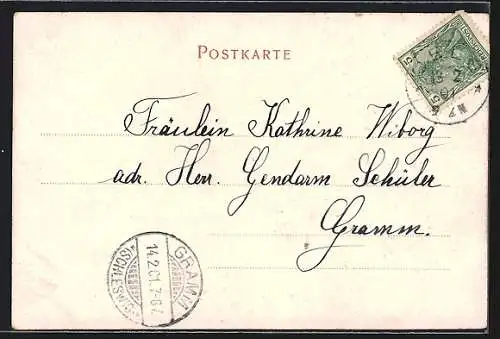 POSTKARTE
Fräulein Kathrine Wiborg
adr. Herr. Gendarm Schüler
Gramm.
GRAMM
14.2.01.7-8V
*(SCHLESWIG)*